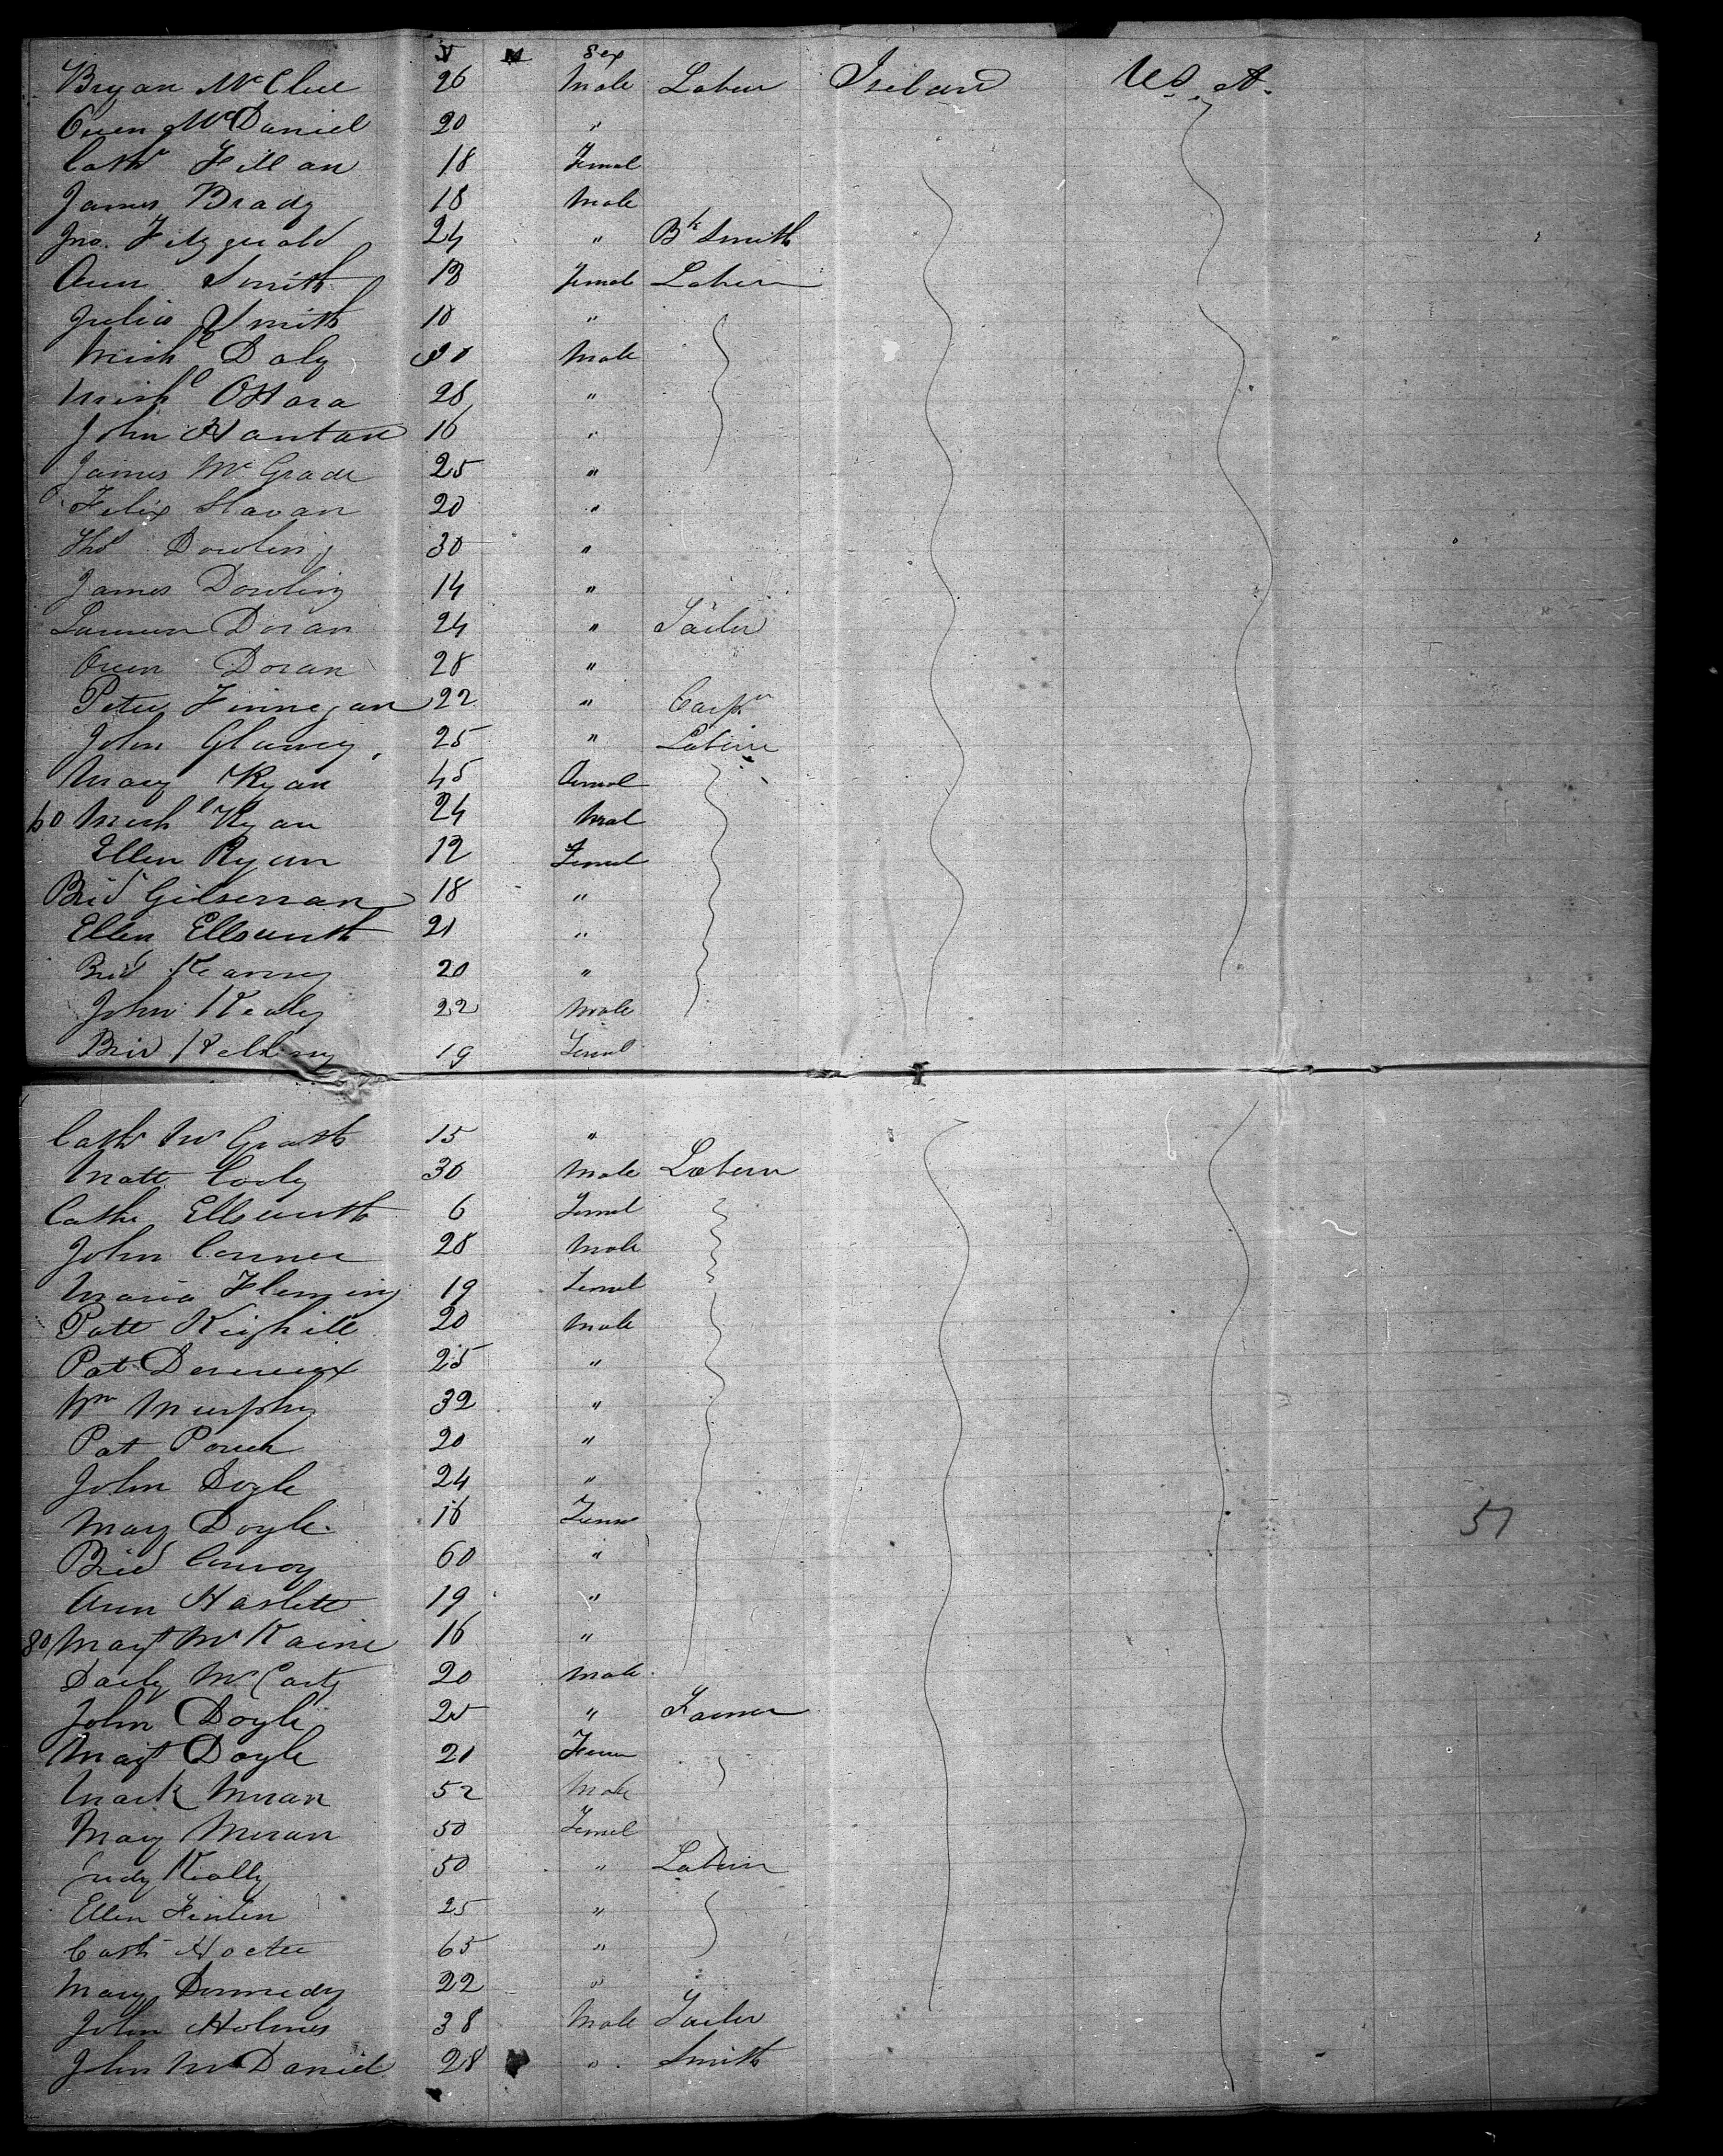 Y M Sex
Bryan McClue 26 Male Labour Ireland U.S.A.
Owen McDaniel 20 "
Cathe Fillan 18 Femal
James Brady 18 Male
Jno. Fitzgerald 24 " Bk Smith
Ann Smith 18 Femal Labour
Julia Smith 10 "
Michl Daly 20 Male
Michl OHara 28 "
John Hantan 16 "
James McGrade 25 "
Felix Slavan 20 "
Thos Dowling 30 "
James Dowling 14 "
Doran 24 " Tailor
Owen Doran 28 "
Peter Finnegan 22 " Carpr
John Glancy 25 " Labour
Mary Ryan 45 Femal
60 Michl Ryan 24 Mal
Ellen Ryan 12 Femal
Brid Gilsenan 18 "
Ellen Ellsworth 21 "
Brid Kearney 20 "
John Kealy 22 Male
Brid 19 Femal
Cath McGrath 15 "
Matt Cody 30 Male Labour
Cathe Ellsworth 6 Femal
John Connor 28 Male
Maria Fleming 19 Femal
Patt Keighill 20 Male
Pat Devereux 25 "
Wm Murphy 32 "
Pat Power 20 "
John Doyle 24 "
Mary Doyle 16 Femal
Brid Conroy 60 "
Ann Haslett 19 "
80 Margt McKaine 16 "
Darby McCarty 20 Male
John Doyle 25 " Farmer
Margt Doyle 21 Fem
Mark Moran 52 Male
Mary Moran 50 Femal
Judy Kelly 50 " Labour
Ellen Finlen 25 "
Cath Hoctee 65 "
Mary Dunnedy 22 "
John Holmes 38 Male Tailor
John McDaniel 28 " Smith
51